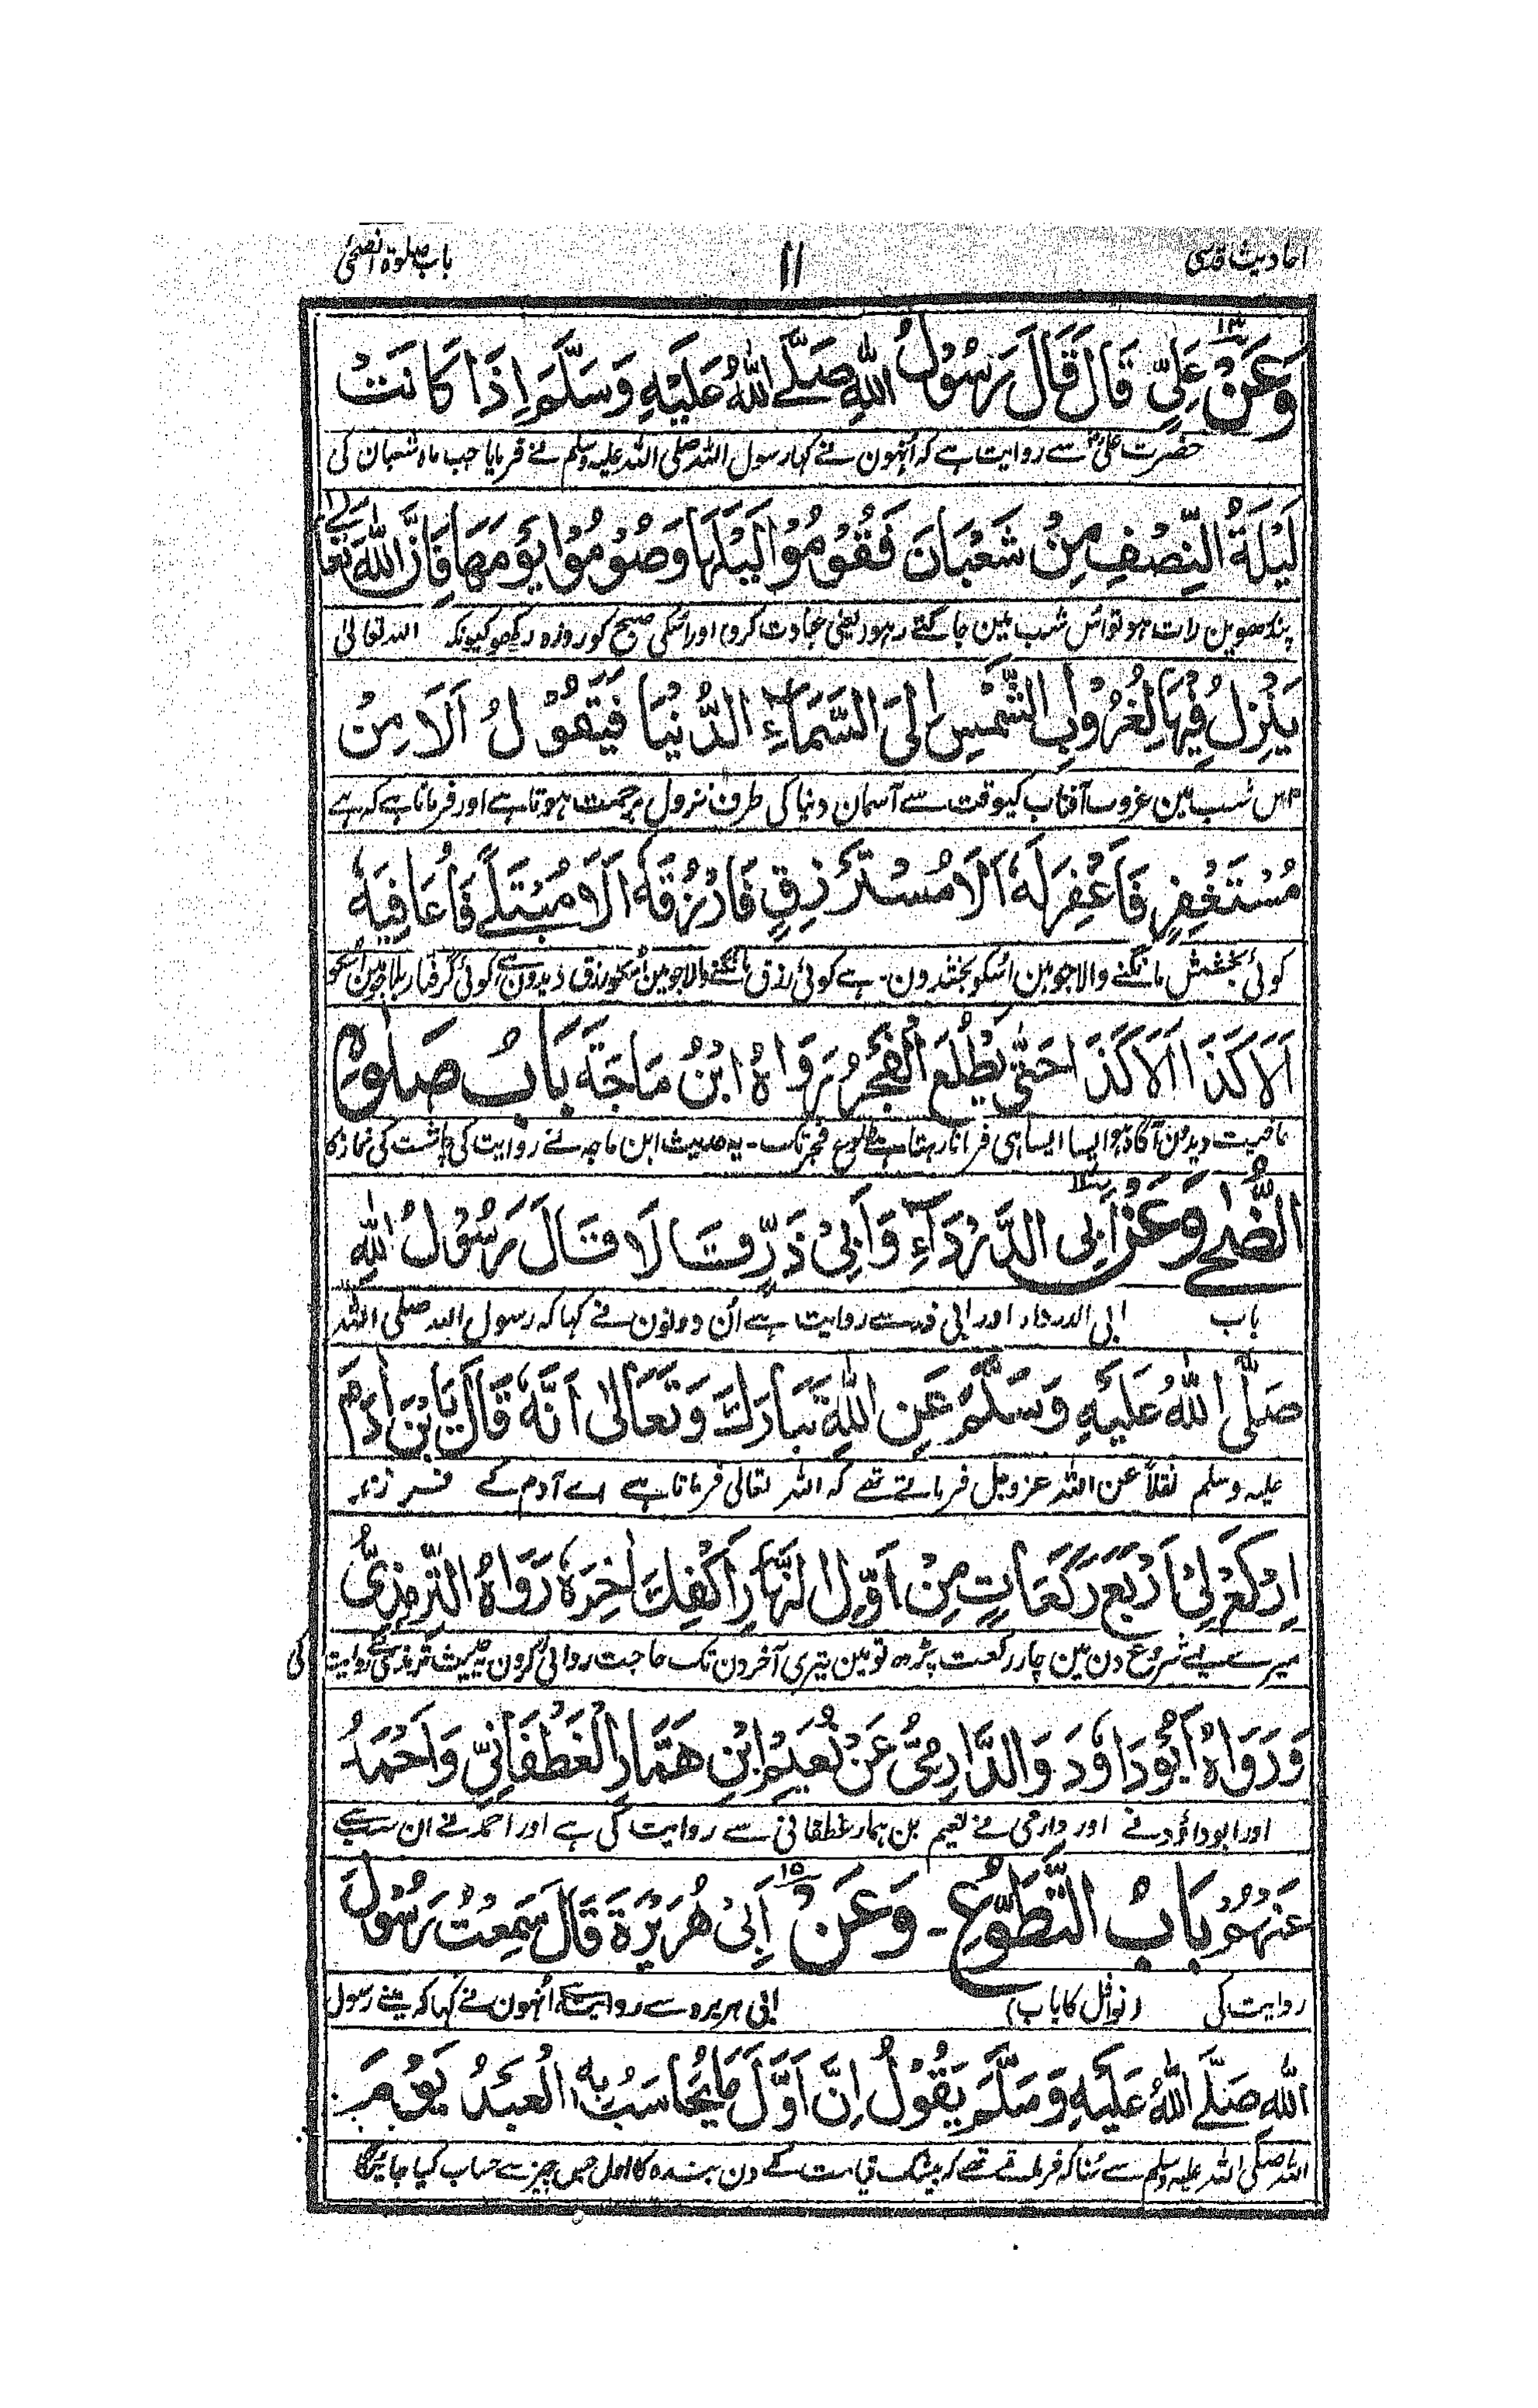 احادیث قدسی
۱۱
باب صلوة الضحیٰ
۱۳
وَعَنْ عَلِیٍّ قَالَ قَالَ رَسُوْلُ اللّٰهِ صَلَّے اللّٰهُ عَلَیْهِ وَسَلَّمَ اِذَا کَانَتْ
حضرت علیؓ سے روایت ہے کہ اُنہون نے کہا رسول اللہ صلی اللہ علیہ وسلم نے فرمایا جب ماہ شعبان کی
لَیْلَةُ النِّصْفِ مِنْ شَعْبَانَ فَقُوْمُوْا لَیْلَهَا وَصُوْمُوْا یَوْمَهَا فَاِنَّ اللّٰهَ تَعَالٰے
پندرہوین رات ہو تو اُس شب مین جاگتے رہو (یعنی عبادت کرو) اور اُسکی صبح کو روزہ رکھو کیونکہ اللہ تعالیٰ
یَنْزِلُ فِیْهَا لِغُرُوْبِ الشَّمْسِ اِلَی السَّمَآءِ الدُّنْیَا فَیَقُوْلُ اَلَا مِنْ
اس شب مین غروب آفتاب کیوقت سے آسمان دنیا کی طرف نزول رحمت ہوتا ہے اور فرماتا ہے کہ ہے
مُسْتَغْفِرٍ فَاَغْفِرَ لَهٗ اَلَا مُسْتَرْزِقٍ فَارْزُقَهٗ اَلَا مُبْتَلًے فَاُعَافِیَهٗ
کوئی بخشش مانگنے والا جو مین اُسکو بخشدون۔ ہے کوئی رزق مانگنے والا جو مین اُسکو رزق دیدون ہے کوئی گرفتار بلا جو مین اُسکو
اَلَا کَذَا اَلَا کَذَا حَتّٰی یَطْلُعَ الْفَجْرُ رَوَاهُ ابْنُ مَاجَةَ بَابُ صَلٰوةِ
عافیت دیدون آگاہ ہو ایسا ایسا ہی فرماتا رہتا ہے طلوع فجر تک۔ یہ حدیث ابن ماجہ نے روایت کی چاشت کی نماز کا
الضُّحٰے وَعَنْ اَبِی الدَّرْدَآءِ وَاَبِیْ ذَرٍّ قَالَا قَالَ رَسُوْلُ اللّٰهِ
باب ابی الدرداء اور ابی ذر سے روایت ہے اُن دونون نے کہا کہ رسول اللہ صلی اللہ
صَلَّی اللّٰهُ عَلَیْهِ وَسَلَّمَ عَنِ اللّٰهِ تَبَارَكَ وَتَعَالٰی اَنَّهٗ قَالَ یَا بْنَ اٰدَمَ
علیہ وسلم نقلاً عن اللہ عزوجل فرماتے تھے کہ اللہ تعالی فرماتا ہے اے آدم کے فرزند
اِرْکَعْ لِیْ اَرْبَعَ رَکَعَاتٍ مِنْ اَوَّلِ النَّهَارِ اَکْفِكَ اٰخِرَهٗ رَوَاهُ التِّرْمِذِیُّ
میرے لیے شروع دن مین چار رکعت پڑھ تو مین تیری آخر دن تک حاجت روائی کرون یہ حدیث ترمذی نے روایت کی
وَرَوَاهُ اَبُوْ دَاوٗدَ وَالدَّارِمِیُّ عَنْ نُعَیْمِ ابْنِ هَمَّارِ الْغَطْفَانِیِّ وَاَحْمَدُ
اور ابو داؤد نے اور دارمی نے نعیم بن ہمار غطفانی سے روایت کی ہے اور احمد نے ان سب سے
عَنْهُمْ بَابُ التَّطَوُّعِ۔ وَعَنْ ۱۵ اَبِیْ هُرَیْرَةَ قَالَ سَمِعْتُ رَسُوْلَ
روایت کی (نوافل کا باب) ابی ہریرہ سے روایت ہے اُنہون نے کہا کہ مینے رسول
اللّٰهِ صَلَّے اللّٰهُ عَلَیْهِ وَسَلَّمَ یَقُوْلُ اِنَّ اَوَّلَ مَا یُحَاسَبُ بِهِ الْعَبْدُ یَوْمَ
اللہ صلی اللہ علیہ وسلم سے سُنا کہ فرماتے تھے کہ بیشک قیامت کے دن بندہ کا اول جس چیز سے حساب کیا جائیگا